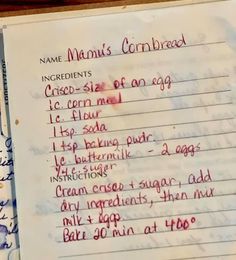 NAME Mamu's Cornbread
INGREDIENTS
Crisco - size of an egg
1c. corn meal
1c. flour
1 tsp soda
1 tsp baking pwdr.
1c buttermilk - 2 eggs
1/4 c. sugar
INSTRUCTIONS
Cream crisco + sugar, add
dry ingredients, then mix
milk + eggs
Bake 20 min at 400°